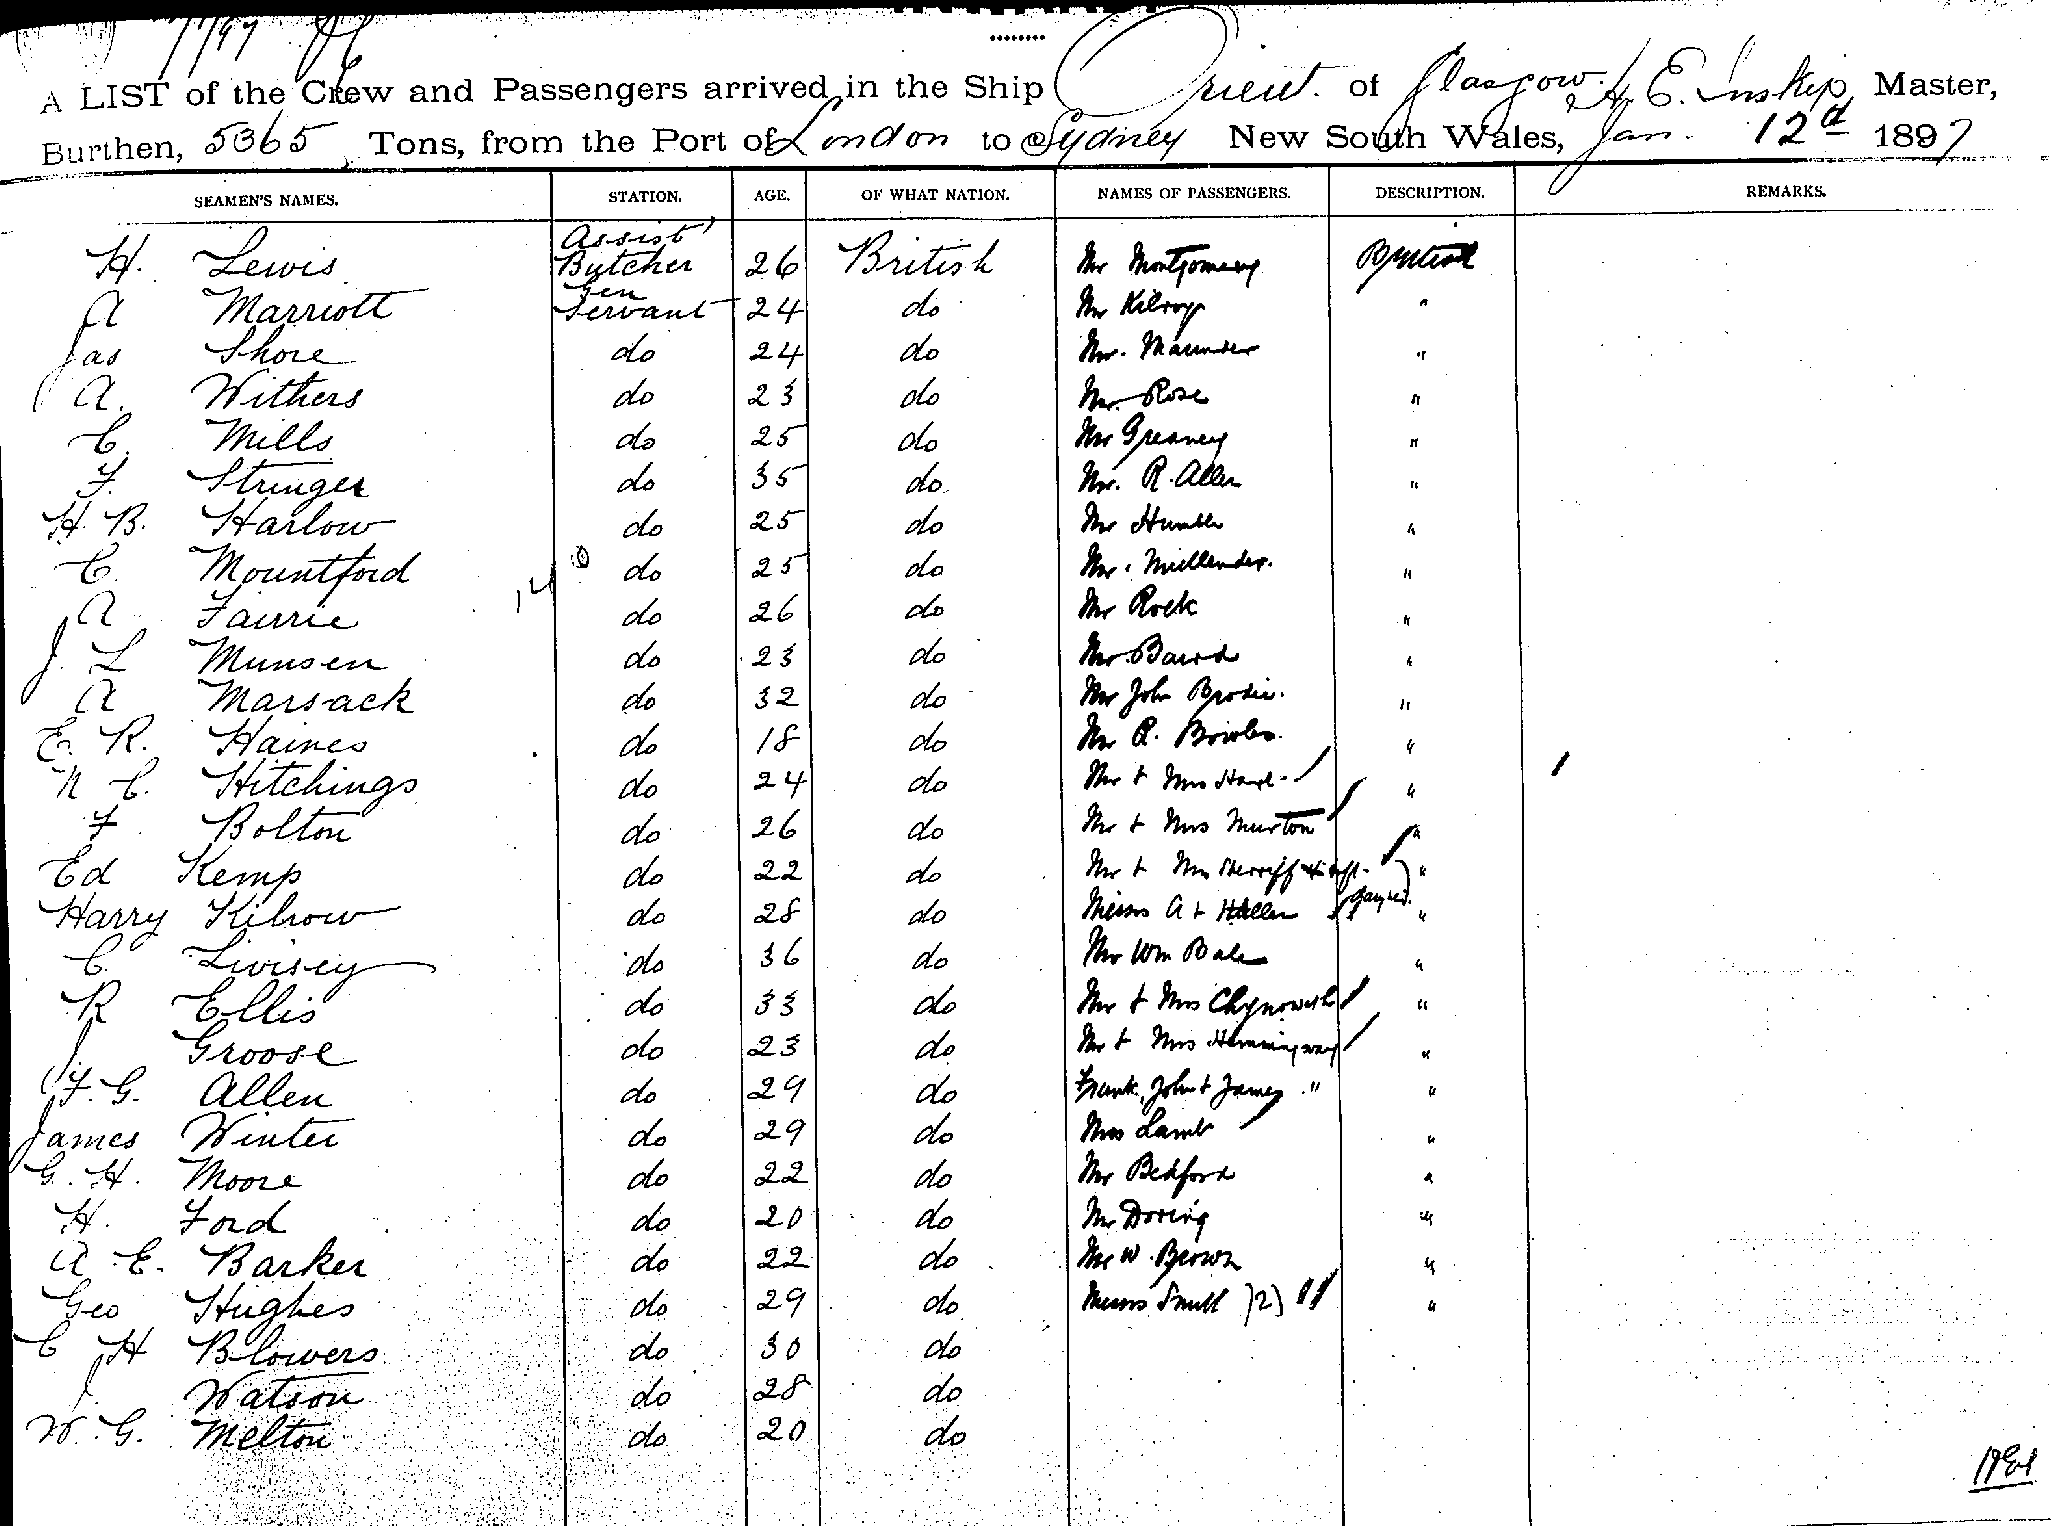 A LIST of the Crew and Passengers arrived in the Ship Orient. of Glasgow. A. E. Inskip Master,
Burthen, 5365 Tons, from the Port of London to Sydney New South Wales, Jan. 12d 1897
SEAMEN'S NAMES. STATION. AGE. OF WHAT NATION. NAMES OF PASSENGERS. DESCRIPTION. REMARKS.
Assist
H. Lewis Butcher 26 British Mr Montgomery British
Gen
A Marriott Servant 24 do Mr Kilroy "
Jas Shore do 24 do Mr. Maunder "
A. Withers do 23 do Mr. Rose "
C. Mills do 25 do Mr Greaney "
F. Stringer do 35 do Mr. R. Allen "
H. B. Harlow do 25 do Mr Humble "
C. Mountford do 25 do Mr. Mullender. "
A Fairrie do 26 do Mr Rock "
J. L Munsen do 23 do Mr. Baird "
A Marsack do 32 do Mr John Brodie. "
E. R. Haines do 18 do Mr R. Bowles. "
N C. Hitchings do 24 do Mr + Mrs "
F Bolton do 26 do Mr + Mrs Murton "
Ed Kemp do 22 do Mr + Mrs Sherriff "
Harry Kilrow do 28 do Messrs A + H Allen "
C. Livisey do 36 do Mr Wm Bale "
R Ellis do 33 do Mr + Mrs Chynoweth "
J. Groose do 23 do Mr + Mrs Hemmingway "
F. G. Allen do 29 do Frank, John + James " "
James Winter do 29 do Mrs Lamb "
G. H. Moore do 22 do Mr Bedford "
H. Ford do 20 do Mr Doring "
A. E. Barker do 22 do Mr W. Brown "
Geo Hughes do 29 do Messrs Smith (2) "
C H Blowers do 30 do
J. Watson do 28 do
W. G. Melton do 20 do